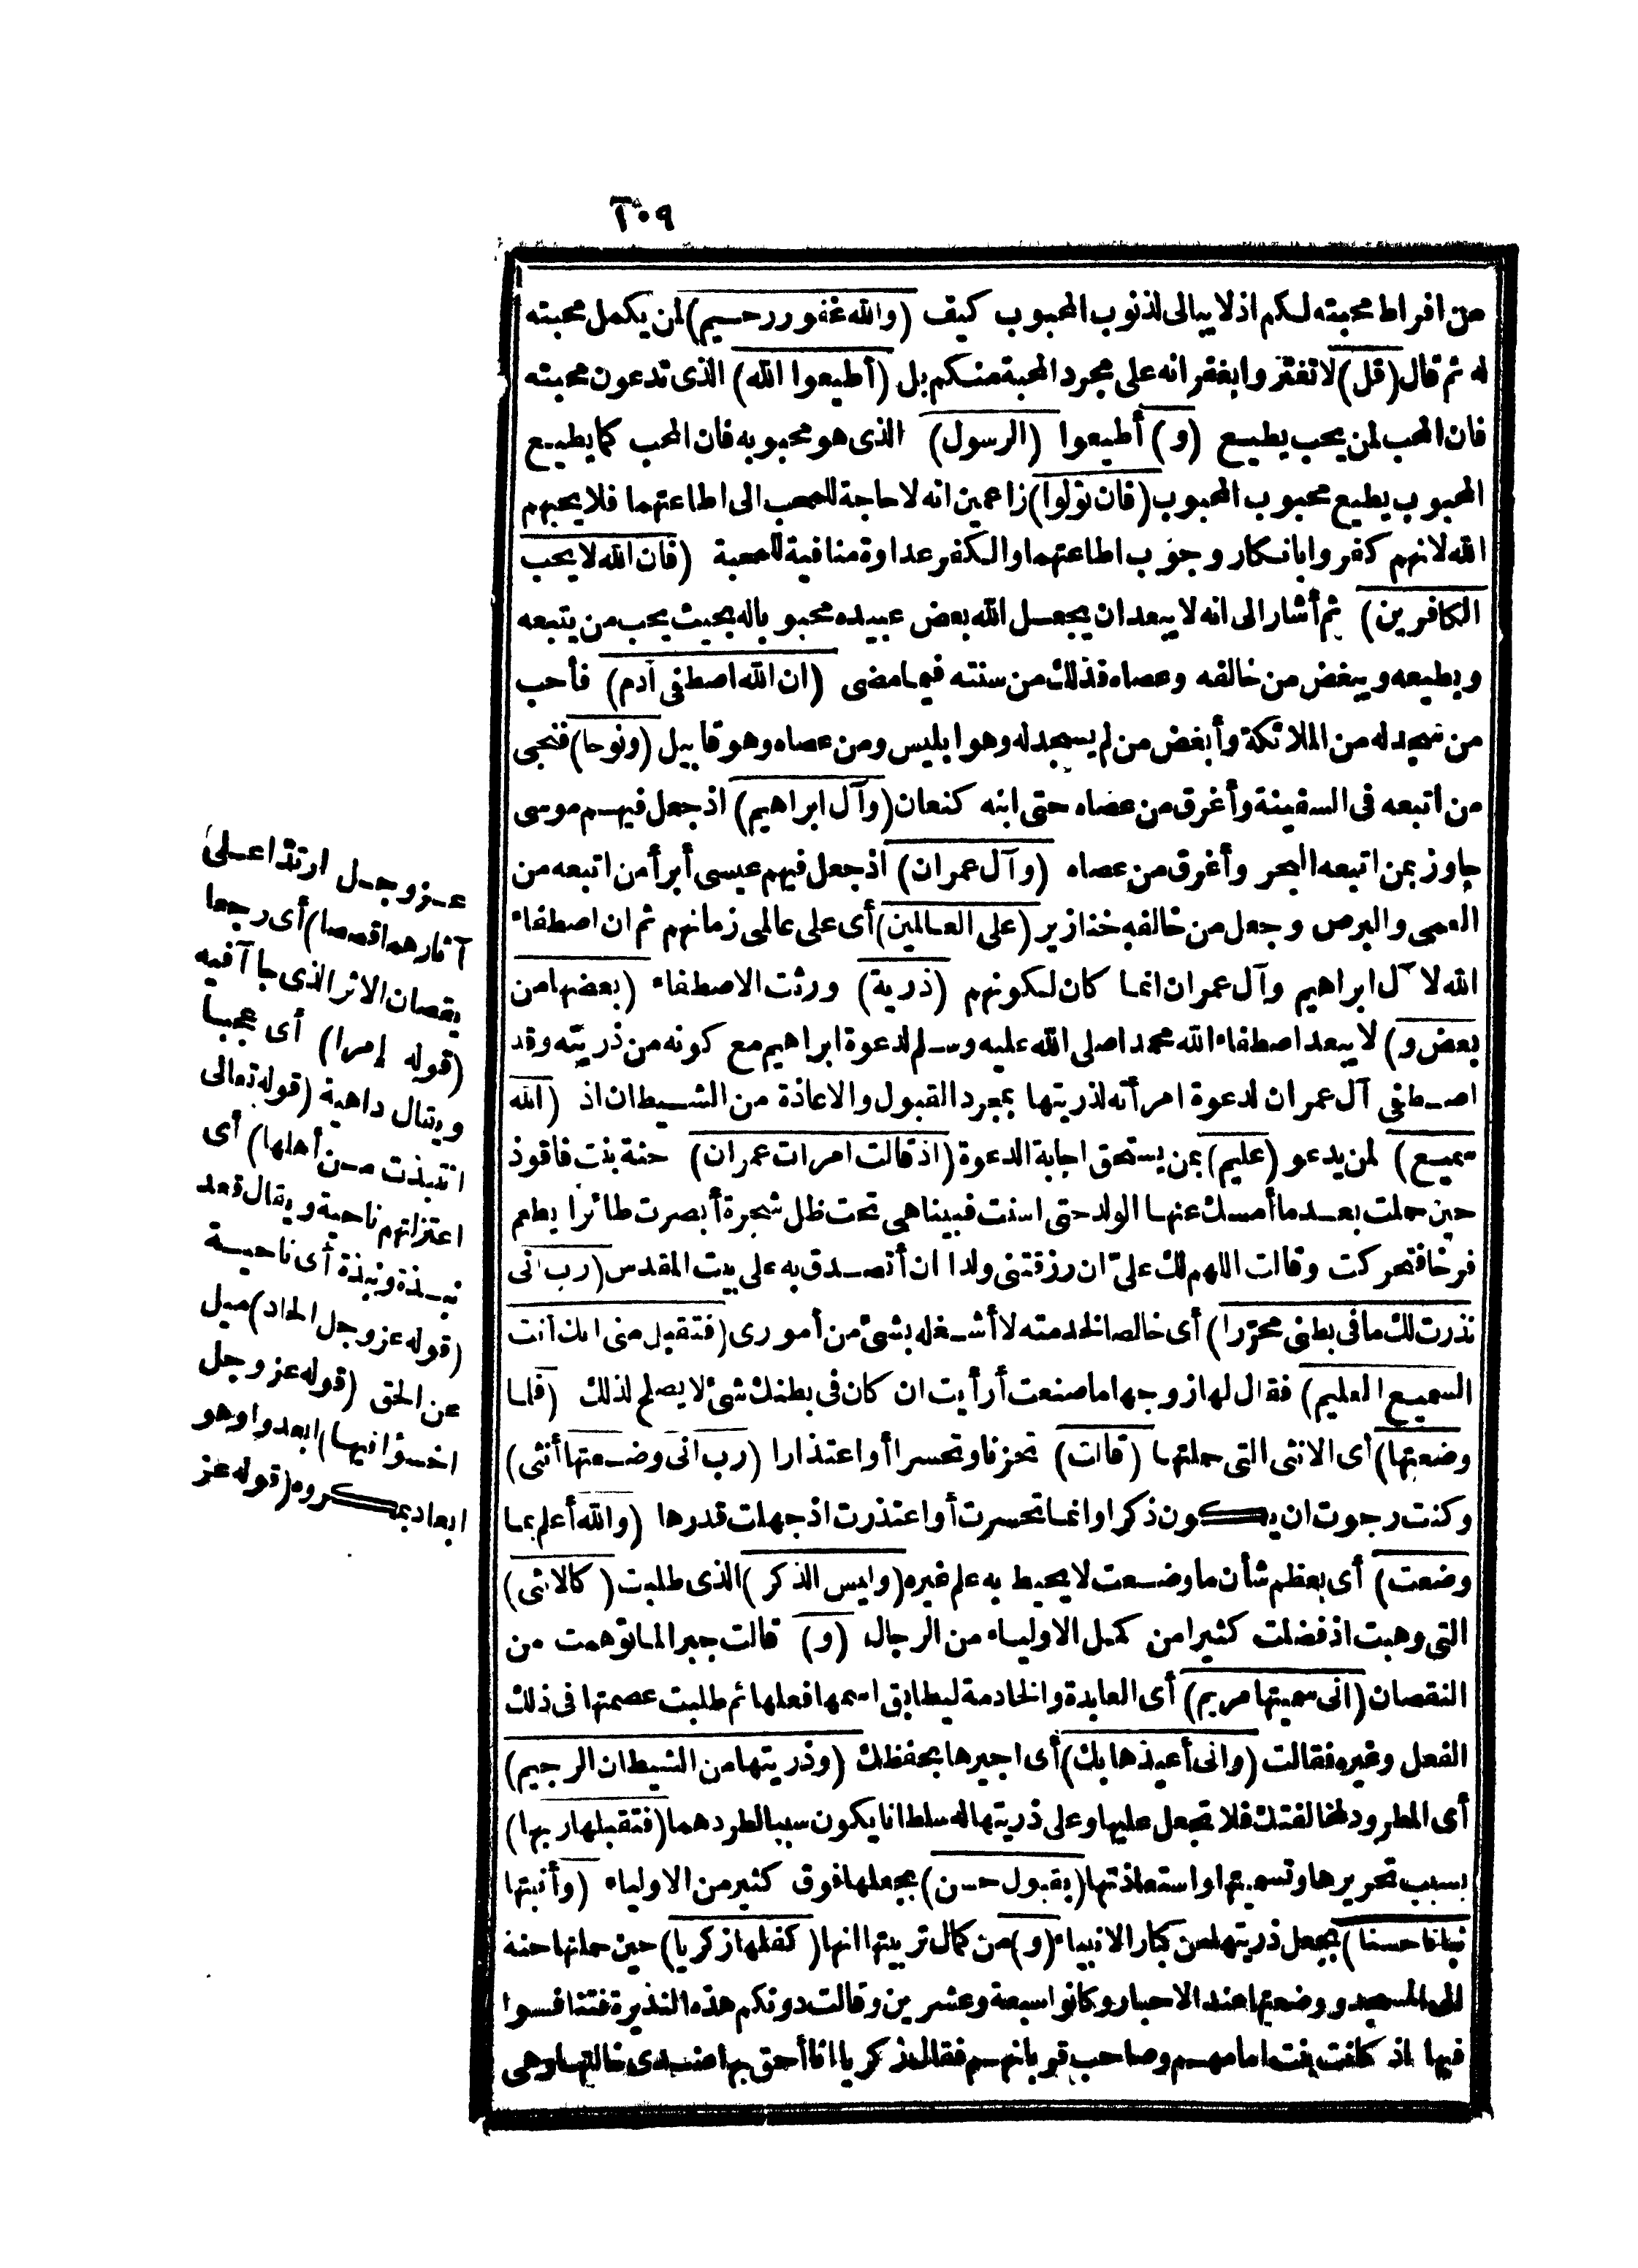 ١٠٩
من افراط محبته لكم اذ لا يبالى لذنوب المحبوب كيف (والله غفور رحيم) لمن يكمل محبته
له ثم قال (قل) لا تغتروا بغفرانه على مجرد المحبة منكم بل (أطيعوا الله) الذى تدعون محبته
فان المحب لمن يحب يطيع (و) أطيعوا (الرسول) الذى هو محبوبه فان المحب كما يطيع
المحبوب يطيع محبوب المحبوب (فان تولوا) زاعمين انه لا حاجة للمحب الى اطاعتهما فلا يحبهم
الله لانهم كفروا بانكار وجوب اطاعتهما والكفر عداوة منافية للمحبة (فان الله لا يحب
الكافرين) ثم أشار الى انه لا يبعد ان يجعل الله بعض عبيده محبوبا له بحيث يحب من يتبعه
ويطيعه ويبغض من خالفه وعصاه فذلك من سنته فيما مضى (ان الله اصطفى آدم) فأحب
من سجد له من الملائكة وأبغض من لم يسجد له وهو ابليس ومن عصاه وهو قابيل (ونوحا) فنجى
من اتبعه فى السفينة وأغرق من عصاه حتى ابنه كنعان (وآل ابراهيم) اذ جعل فيهم موسى
جاوز بمن اتبعه البحر وأغرق من عصاه (وآل عمران) اذ جعل فيهم عيسى أبرأ من اتبعه من
العمى والبرص وجعل من خالفه خنازير (على العالمين) أى على عالمى زمانهم ثم ان اصطفاء
الله لآل ابراهيم وآل عمران انما كان لكونهم (ذرية) ورثت الاصطفاء (بعضها من
بعض و) لا يبعد اصطفاء الله محمدا صلى الله عليه وسلم لدعوة ابراهيم مع كونه من ذريته وقد
اصطفى آل عمران لدعوة امرأته لذريتها بمجرد القبول والاعاذة من الشيطان اذ (الله
سميع) لمن يدعو (عليم) بمن يستحق اجابة الدعوة (اذ قالت امرات عمران) حنة بنت فاقوذ
حين حملت بعد ما أمسك عنها الولد حتى اسنت فبينا هى تحت ظل شجرة أبصرت طائرا يطعم
فرخا فتحركت وقالت اللهم لك علىّ ان رزقتنى ولدا ان أتصدق به على بيت المقدس (رب انى
نذرت لك ما فى بطنى محرّرا) أى خالصا لخدمته لا أشغله بشئ من أمورى (فتقبل منى انك أنت
السميع العليم) فقال لها زوجها ما صنعت أرأيت ان كان فى بطنك شئ لا يصلح لذلك (فلما
وضعتها) أى الانثى التى حملتها (قالت) تحزنا وتحسرا أو اعتذارا (رب انى وضعتها أنثى)
وكنت رجوت ان يكون ذكرا وانما تحسرت أو اعتذرت اذ جهلت قدرها (والله أعلم بما
وضعت) أى بعظم شأن ما وضعت لا يحيط به علم غيره (وليس الذكر) الذى طلبت (كالانثى)
التى وهبت اذ فضلت كثيرا من كمل الاولياء من الرجال (و) قالت جبرا لما توهمت من
النقصان (انى سميتها مريم) أى العابدة والخادمة ليطابق اسمها فعلها ثم طلبت عصمتها فى ذلك
الفعل وغيره فقالت (وانى أعيذها بك) أى اجيرها بحفظك (وذريتها من الشيطان الرجيم)
أى المطرود لمخالفتك فلا تجعل عليها وعلى ذريتها له سلطانا يكون سببا لطردهما (فتقبلها ربها)
بسبب تحريرها وتسميتها واستعاذتها (بقبول حسن) يجعلها فوق كثير من الاولياء (وأنبتها
نباتا حسنا) بجعل ذريتها من كبار الانبياء (و) من كمال تربيتها انها (كفلها زكريا) حين حملتها حنة
الى المسجد ووضعتها عند الاحبار وكانوا سبعة وعشرين وقالت دونكم هذه النذيرة فتنافسوا
فيها اذ كانت بنت امامهم وصاحب قربانهم فقال زكريا انا أحق بها عندى خالتها وهى
عز وجل ارتدّا على
آثارهما قصصا) أى رجعا
يقصان الاثر الذى جاآ فيه
(قوله إمرا) أى عجبا
ويقال داهية (قوله تعالى
انتبذت من أهلها) أى
اعتزلتهم ناحية ويقال قعد
نبذة ونبذة أى ناحية
(قوله عز وجل الحاد) ميل
عن الحق (قوله عز وجل
اخسؤا فيها) ابعدوا وهو
ابعاد بمكروه (قوله عز